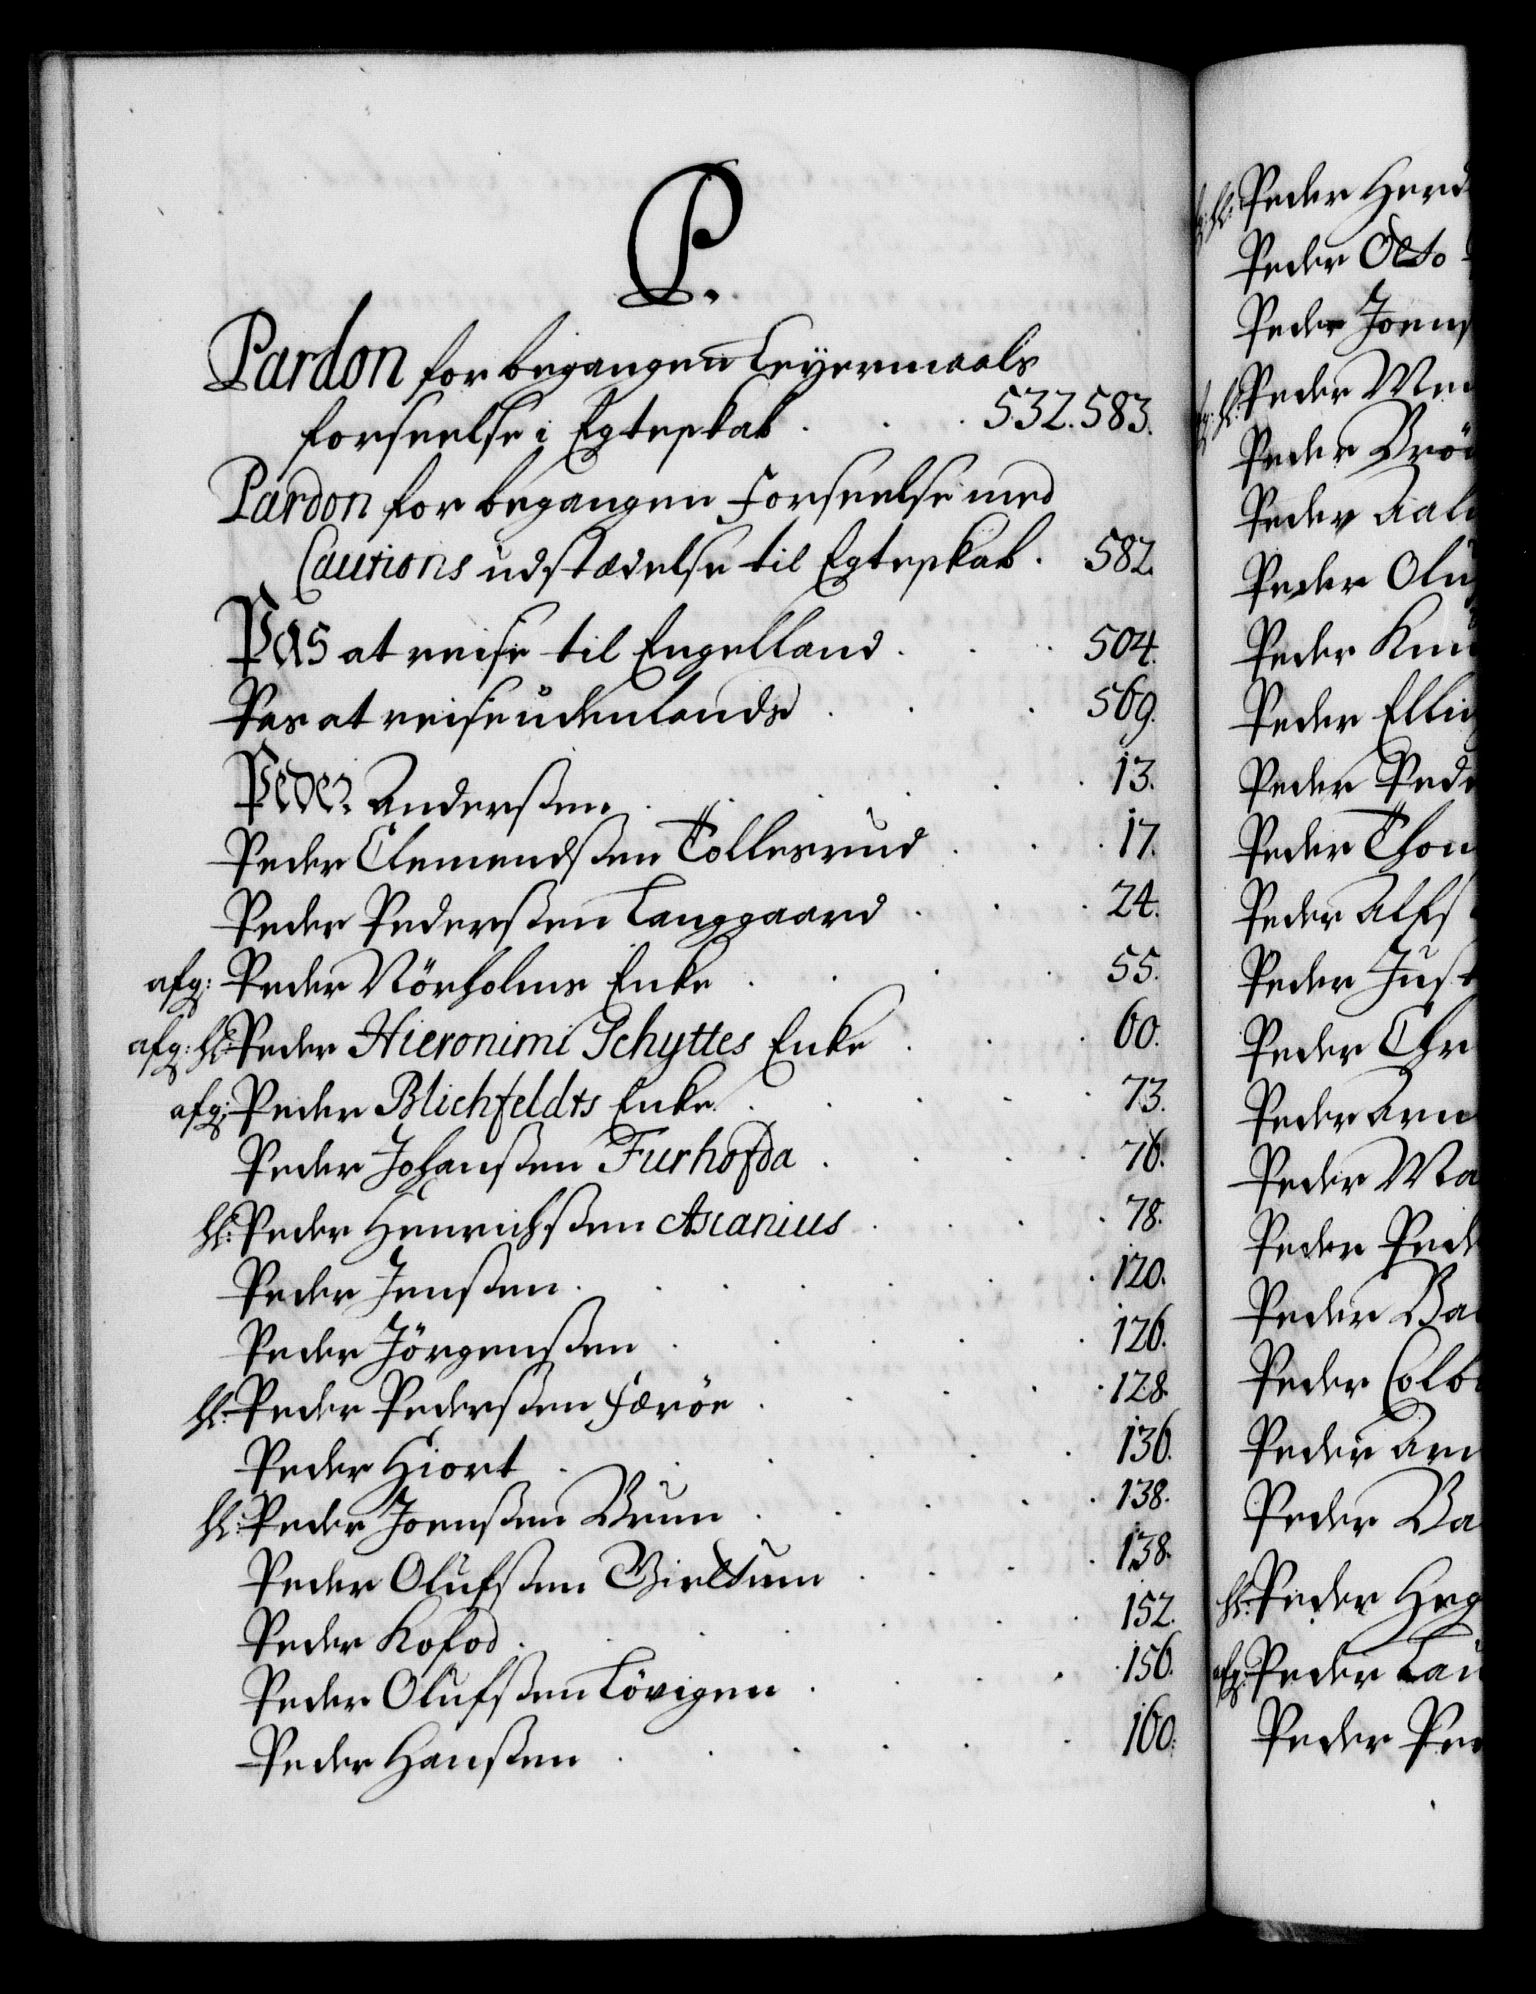 P.
Pardon for begangen Leyermaals
forseelse i Egteskab . . . 532. 583.
Pardon for begangen Forseelse med
Cautions udstædelse til Egteskab . 582.
Pas at reise til Engelland . . . 504.
Pas at reise udenlands . . . 569.
Peder Anderssen . . . . 13.
Peder Clemendssen Tollesrud . . . 17.
Peder Pederssen Langgaard . . . 24.
afg: Peder Nörholms Enke . . . . 55.
afg: hl: Peder Hieronimi Schyttes Enke . . . 60.
afg: Peder Blichfeldts Enke . . . . 73.
Peder Johanssen Furhofda . . . . 76.
hl: Peder Henrichssen Ascanius . . . . 78.
Peder Jenssen . . . . . . 120.
Peder Jörgenssen . . . . 126.
hl: Peder Pederssen Færöe . . . . 128.
Peder Hiort . . . . . 136.
hl: Peder Joenssen Bruun . . . . 138.
Peder Olufssen Wirtum . . . . 138.
Peder Kofod . . . . . 152.
Peder Olufssen Lövigen . . . . 156.
Peder Hanssen . . . . . 160.
hl: Peder Herd
Peder Otto
Peder Joens
hl: Peder Me
Peder Brö
Peder Aal
Peder Olu
Peder Knu
Peder Ellin
Peder Ped
Peder Thom
Peder Alfs
Peder Just
Peder Chr
Peder Arn
Peder Ma
Peder Ped
Peder Ba
Peder Colb
Peder Arn
Peder Ba
hl: Peder Heg
afg: Peder Lau
Peder Ped